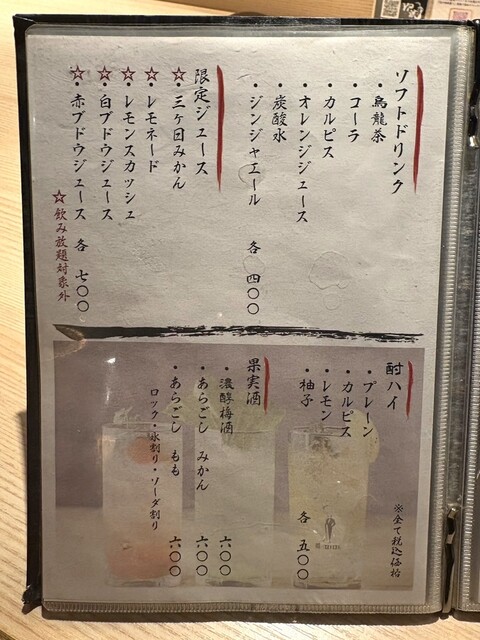 ソフトドリンク
・烏龍茶
・コーラ
・カルピス
・オレンジジュース
・炭酸水
・ジンジャエール 各 四〇〇
限定ジュース
☆・三ケ日みかん
☆・レモネード
☆・レモンスカッシュ
☆・白ブドウジュース
☆・赤ブドウジュース 各 七〇〇
☆飲み放題対象外
酎ハイ
・プレーン
・カルピス
・レモン
・柚子 各 五〇〇
※全て税込価格
果実酒
・濃醇梅酒 六〇〇
・あらごし みかん 六〇〇
・あらごし もも 六〇〇
ロック・水割り・ソーダ割り